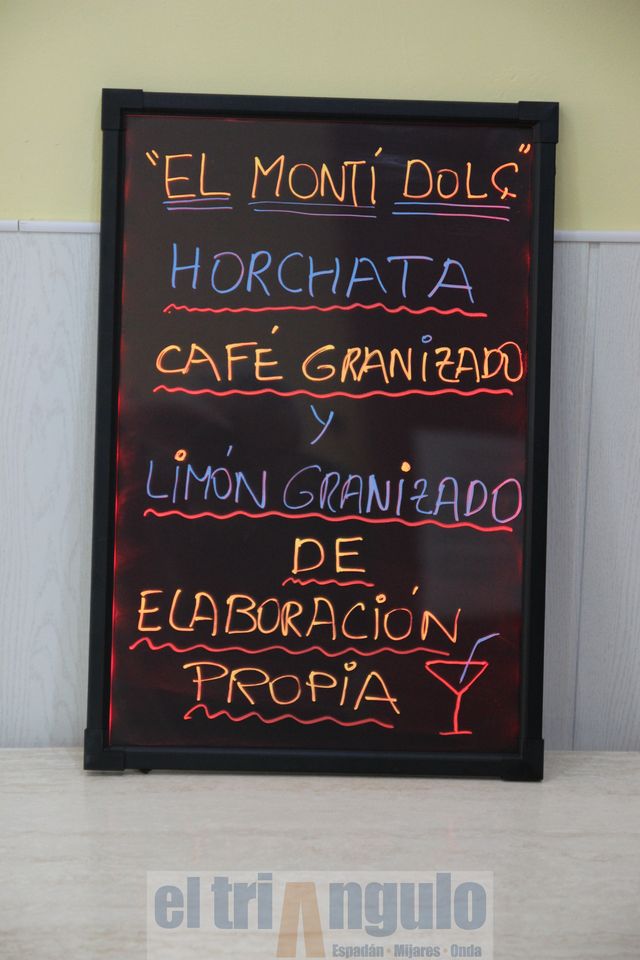 "EL MONTÍ DOLÇ"
HORCHATA
CAFÉ GRANIZADO
Y
LIMÓN GRANIZADO
DE
ELABORACIÓN
PROPIA
el triAngulo
Espadán · Mijares · Onda